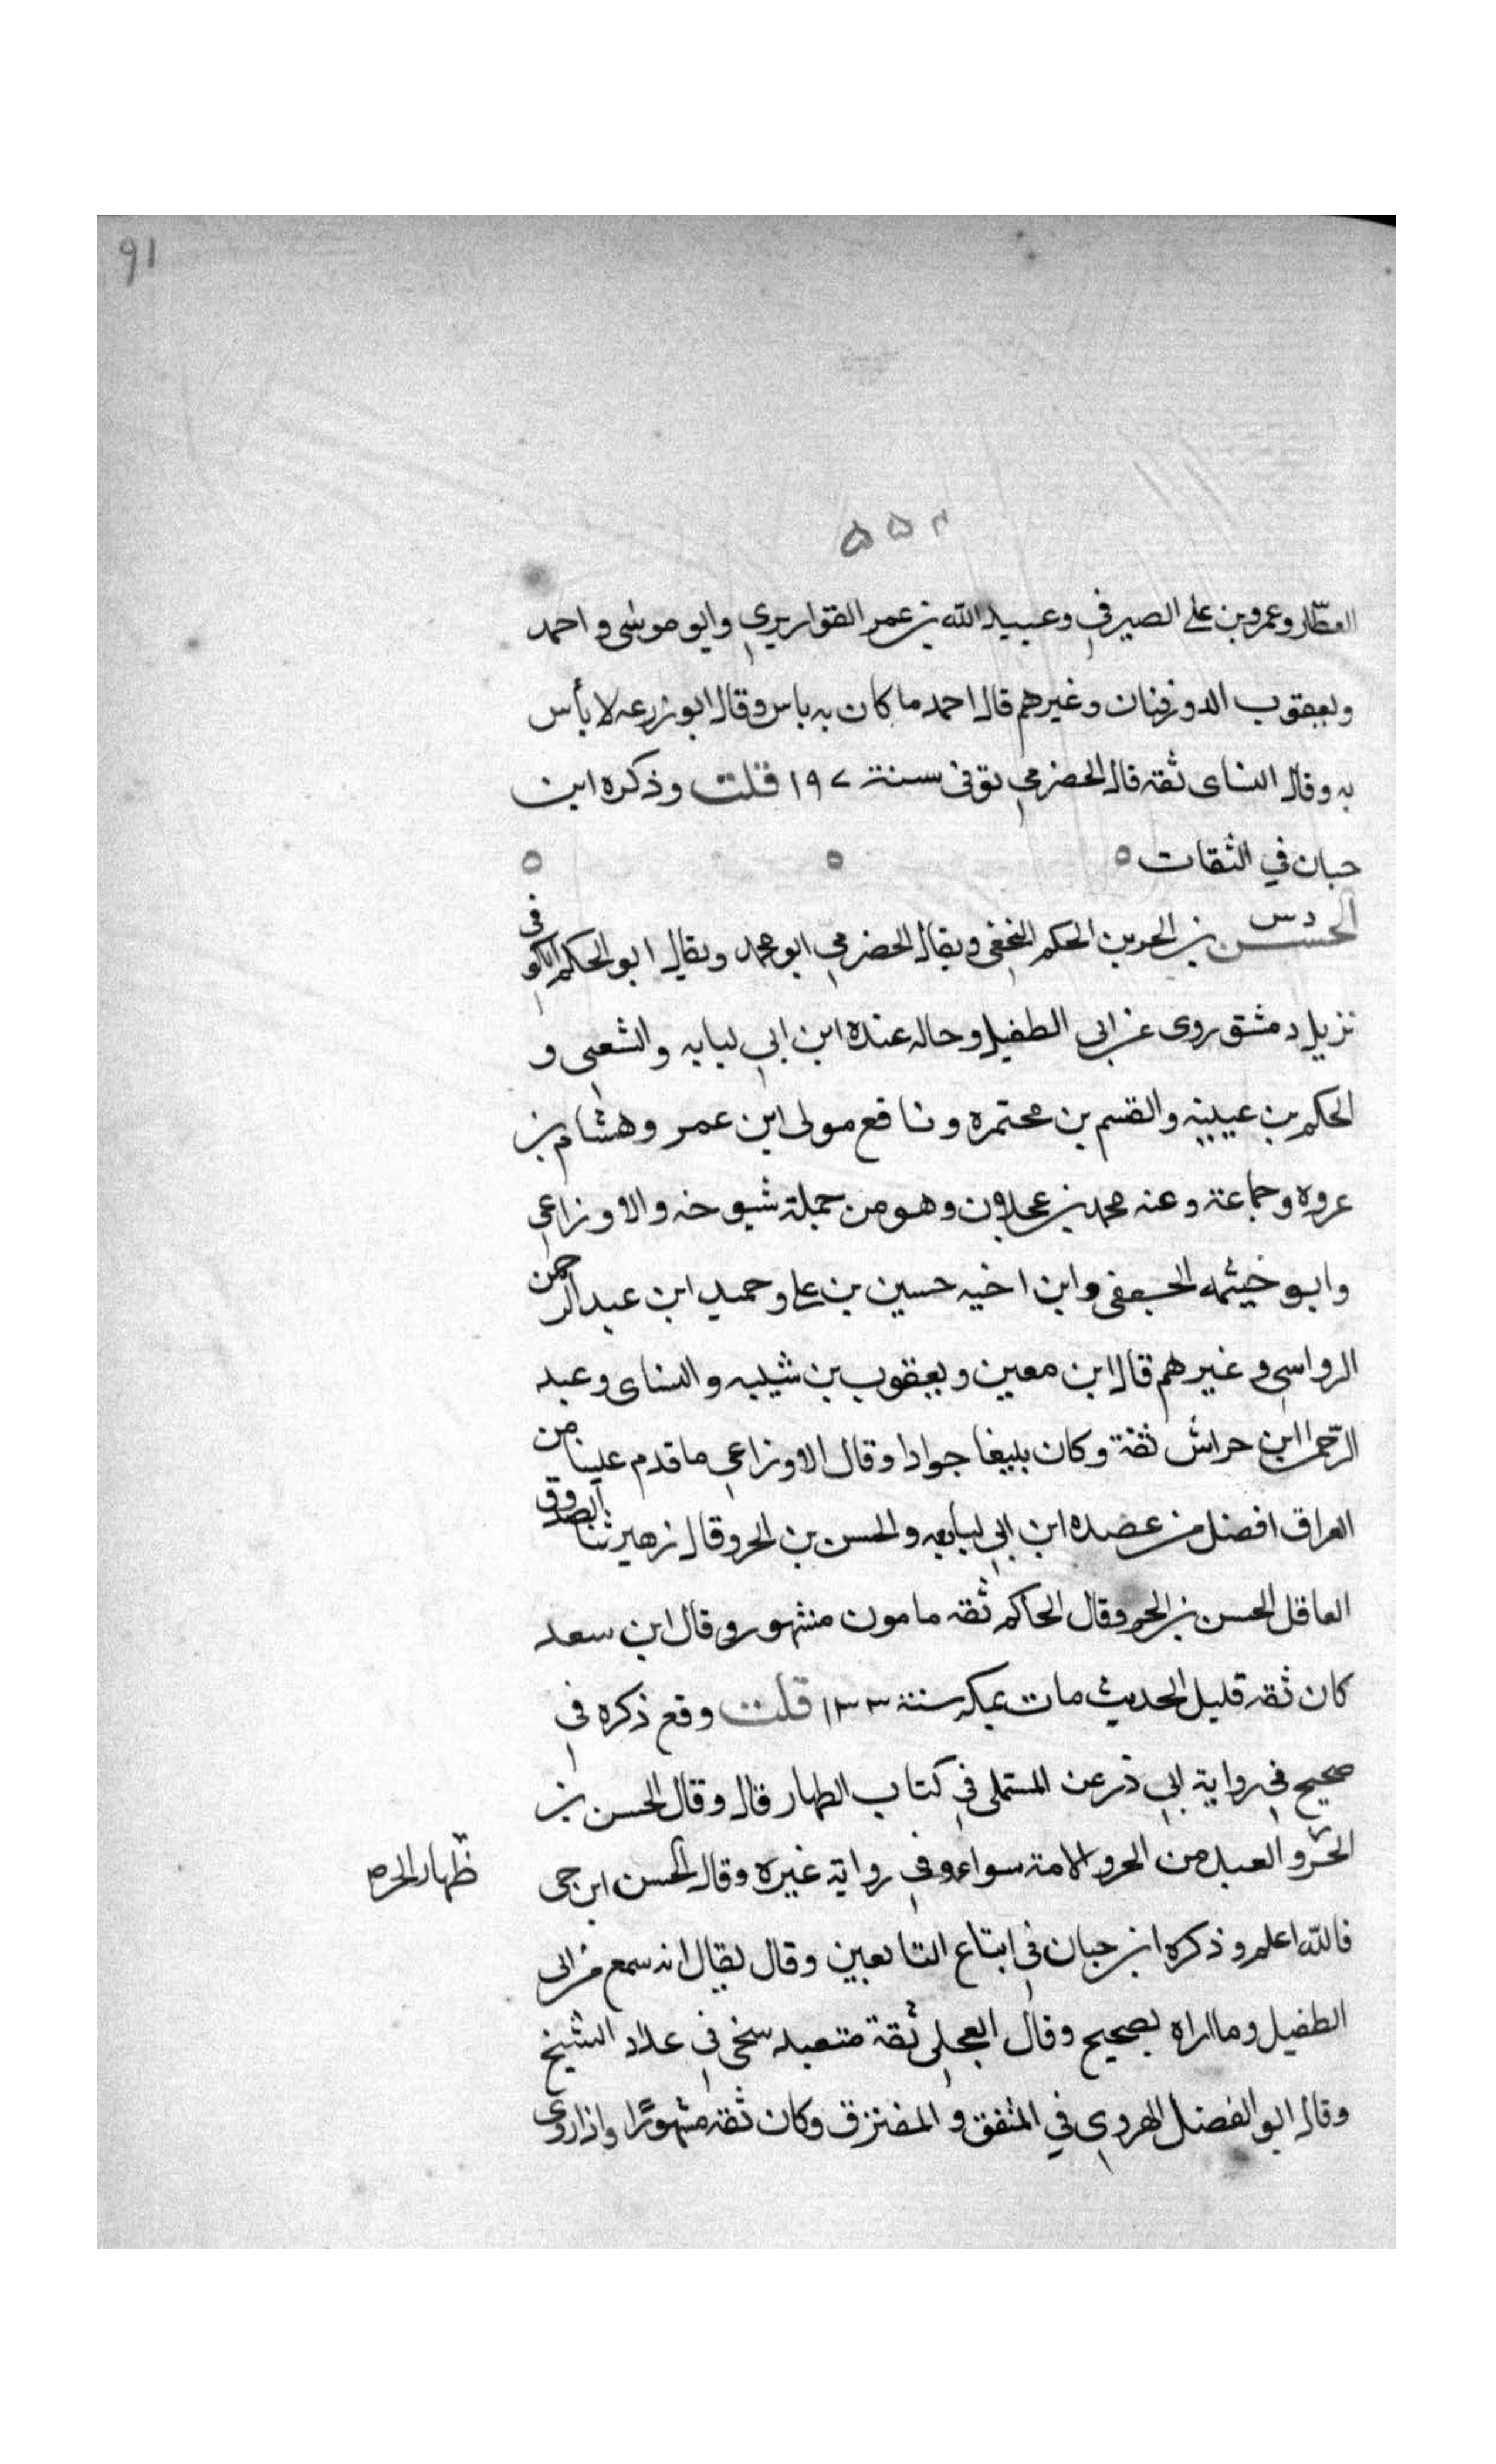 91
العطّار وعمرو بن على الصيرفي وعبيد الله بن عمر القواريري وابو موسى و احمد
ويعقوب الدورقيان وغيرهم قال احمد ما كان به باس وقال ابو زرعه لا بأس
به وقال النساى ثقه قال الحضرمي توفى سنة ١٩٧ قلت وذكره ابن
حبان في الثقات ٥ ٥ ٥
د س
الحسن بن الحر بن الحكم النخعي ويقال الحضرمي ابو محمد ويقال ابو الحكم الكوفى
نزيل دمشق روى عن ابى الطفيل وخاله عبدة ابن ابي لبابه والشعبى و
الحكم بن عيينه والقسم بن مخيمره ونافع مولى ابن عمر وهشام بن
عروه وجماعة وعنه محمد بن عجلان وهو من جملة شيوخه والاوزاعي
وابو خيثمه الجعفى وابن اخيه حسين بن على وحميد ابن عبد الرحمن
الرواسي وغيرهم قال ابن معين ويعقوب بن شيبه والنساى وعبد
الرحمن ابن خراش ثقة وكان بليغا جوادا وقال الاوزاعي ما قدم علينا من
العراق افضل من عبده ابن ابي لبابه والحسن بن الحر وقال زهير ثنا الصدوق
العاقل الحسن بن الحر وقال الحاكم ثقه مامون مشهور وقال ابن سعد
كان ثقه قليل الحديث مات بمكه سنة ١٣٣ قلت وقع ذكره في
صحيح في رواية ابي ذر عن المستملى في كتاب الظهار قال وقال الحسن بن
الحر و العبد من الحر والامة سواء وفي رواية غيره وقال الحسن ابن حى
ظهار الحر
فالله اعلم وذكره ابن حبان في اتباع التابعين وقال يقال انه سمع من ابى
الطفيل وما اراه بصحيح وقال العجلى ثقة متعبد سخى في عداد الشيخ
وقال ابو الفضل الهروي في المتفق و المفترق وكان ثقه مشهورًا واذا روى